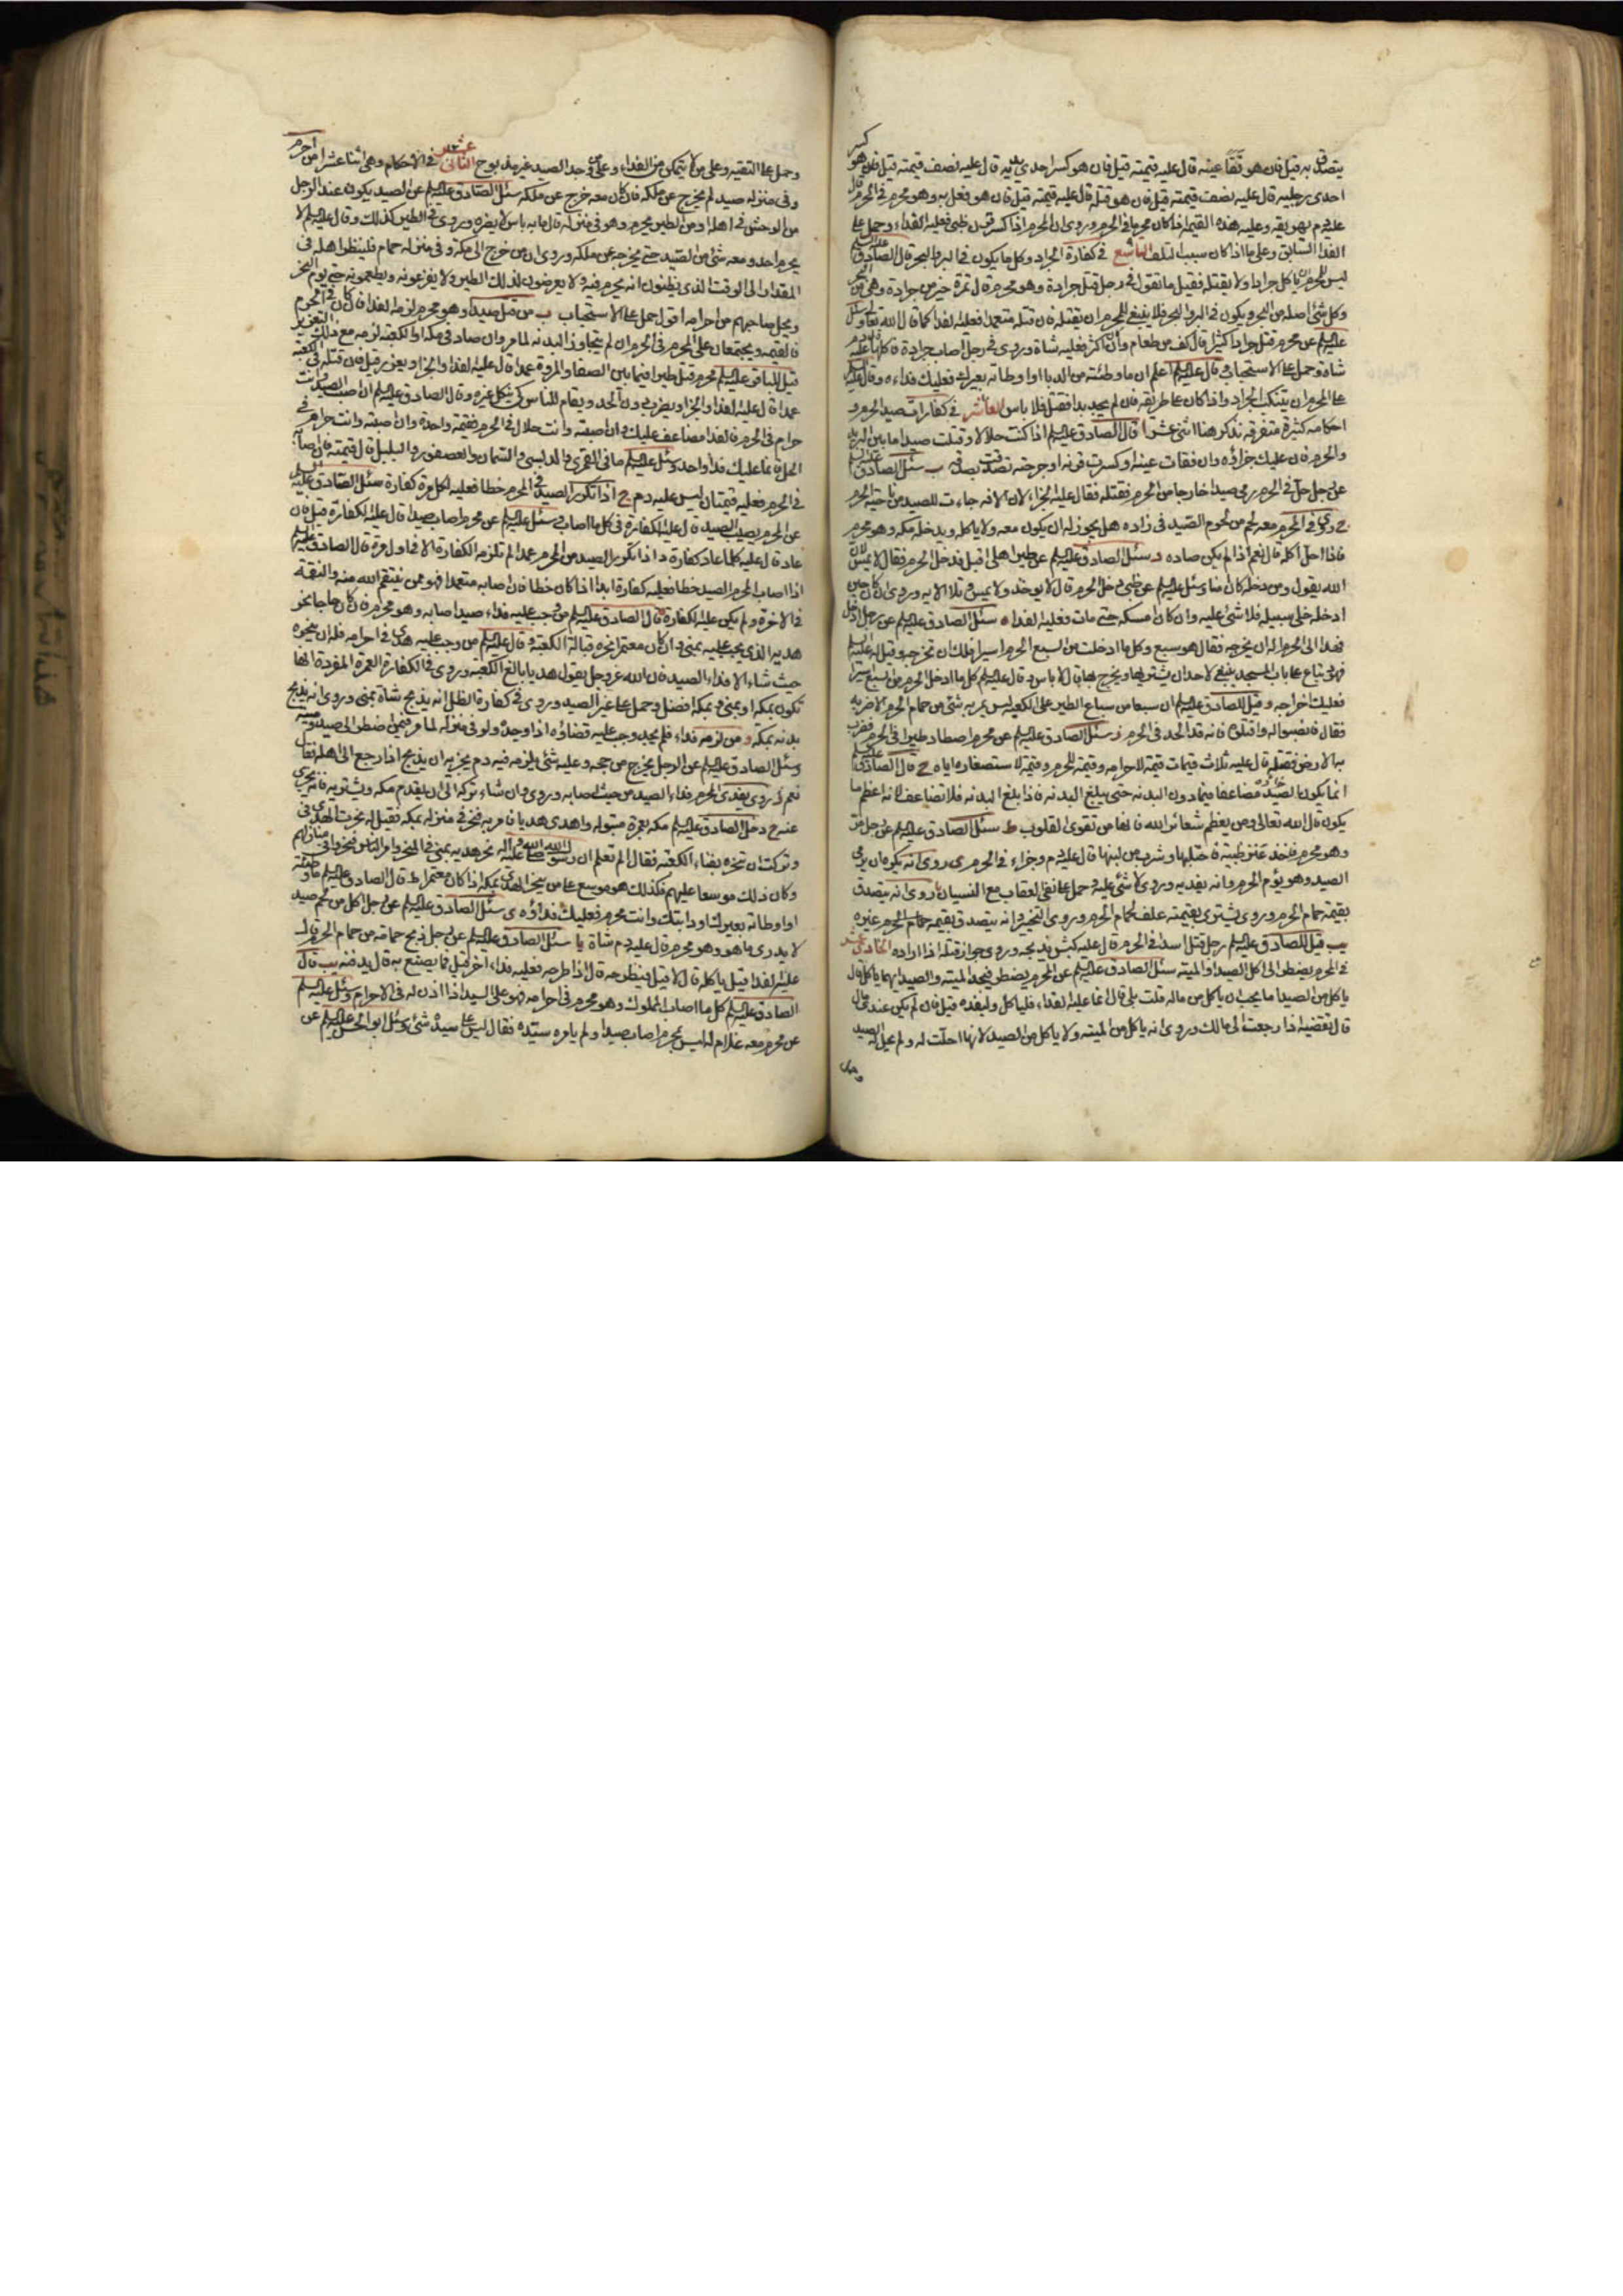 يتصدق به قيل فان هو فقأ عينه قال عليه قيمته قيل فان هو كسر احدى يديه قال عليه نصف قيمته قيل فان هو كسر
احدى رجليه قال عليه نصف قيمته قيل فان هو قتله قال عليه قيمته قيل فان هو فعل به وهو محرم في الحرم قال
عليه دم يهريقه وعليه هذه القيمة اذا كان محرما في الحرم وروى ان المحرم اذا كسر قرن ظبي فعليه الفداء وحمل على
الفداء السابق وعلى ما اذا كان سببا لتلفه التاسع في كفارة الجراد وكل ما يكون في البر والبحر قال الصادق عليه السلم
ليس للمحرم ان ياكل جرادا ولا يقتله فقيل ما تقول في رجل قتل جرادة وهو محرم قال تمرة خير من جرادة وهي من البحر
وكل شئ اصله من البحر ويكون في البر والبحر فلا ينبغي للمحرم ان يقتله فان قتله متعمدا فعليه الفداء كما قال الله تعالى وسئل
عليه السلم عن محرم قتل جرادا كثيرا قال كف من طعام وان كان اكثر فعليه شاة وروى في رجل اصاب جرادة فاكلها عليه دم
شاة وحمل على الاستحباب وقال عليه السلم اعلم ان ما وطئته من الدبا او اوطاته بعيرك فعليك فداءه وقال عليه السلم
على المحرم ان يتنكب الجراد اذا كان على طريقه فان لم يجد بدا فقتل فلا باس العاشر في كفارات صيد الحرم و
احكامه كثيرة متفرقة نذكر هنا اثنى عشر ا قال الصادق عليه السلم اذا كنت حلالا وقتلت صيدا ما بين البريد
والحرم فان عليك جزاؤه وان فقات عينه او كسرت قرنه او جرحته تصدقت بصدقة ب سئل الصادق عليه السلم
عن رجل حل في الحرم رمى صيدا خارجا من الحرم فقتله فقال عليه الجزاء لان الافة جاءت للصيد من ناحية الحرم
ج روى في المحرم معه لحم من لحوم الصيد في زاده هل يجوز له ان يكون معه ولا ياكله ويدخله مكة وهو محرم
فاذا احل اكله قال نعم اذا لم يكن صاده د سئل الصادق عليه السلم عن طير اهلي اقبل فدخل الحرم فقال لا يمس لان
الله يقول ومن دخله كان امنا وسئل عليه السلم عن ظبي دخل الحرم قال لا يؤخذ ولا يمس وتلا الاية وروى ان كان حين
ادخله خلى سبيله فلا شئ عليه وان كان امسكه حتى مات فعليه الفداء ه سئل الصادق عليه السلم عن رجل ادخل
فهدا الى الحرم اله ان يخرجه فقال هو سبع وكل ما ادخلت من السبع الحرم اسيرا فلك ان تخرجه وقيل له عليه السلم
فهود تباع على باب المسجد ينبغي لاحد ان يشتريها ويخرج بها قال لا باس وقال عليه السلم كل ما ادخل الحرم من السبع اسيرا
فعليك اخراجه وقيل للصادق عليه السلم ان سبعا من سباع الطير على الكعبة ليس يمر به شئ من حمام الحرم الا ضربه
فقال فانصبوا له واقتلوه فانه قد الحد في الحرم ز سئل الصادق عليه السلم عن محرم اصطاد طيرا في الحرم فضرب
به الارض فقتله قال عليه ثلاث قيمات قيمة لاحرامه وقيمة للحرم وقيمة لاستصغاره اياه ح قال الصادق عليه السلم
انما يكون الصيد مضاعفا فيما دون البدنة حتى يبلغ البدنة فاذا بلغ البدنة فلا تضاعف لانه اعظم ما
يكون قال الله تعالى ومن يعظم شعائر الله فانها من تقوى القلوب ط سئل الصادق عليه السلم عن رجل مر
وهو محرم فاخذ عنز ظبية فاحتلبها وشرب من لبنها قال عليه دم وجزاء في الحرم ى روى انه يكره ان يرمى
الصيد وهو يؤم الحرم وانه يفديه وروى لا شئ عليه وحمل على نفي العقاب مع النسيان يا روى انه يتصدق
بقيمة حمام الحرم وروى يشترى بقيمته علف لحمام الحرم وروى التخيير وانه يتصدق بقيمة حمام الحرم غيره
يب قيل للصادق عليه السلم رجل قتل اسدا في الحرم قال عليه كبش يذبحه وروى جواز قتله اذا اراده الحادي عشر
في المحرم يضطر الى اكل الصيد او الميتة سئل الصادق عليه السلم عن المحرم يضطر فيجد الميتة والصيد ايهما ياكل قال
ياكل من الصيد اما يحب ان ياكل من ماله قلت بلى قال انما عليه الفداء فلياكل وليفده قيل فان لم يكن عندي مال
قال تقضيه اذا رجعت الى مالك وروى انه ياكل من الميتة ولا ياكل من الصيد لانها احلت له ولم يحل له الصيد
وحمل
وحمل على التقية وعلى من لا يتمكن من الفداء وعلى من وجد الصيد غير مذبوح الثاني عشر في الاحكام وهي اثنا عشر ا من احرم
وفي منزله صيد لم يخرج عن ملكه فان كان معه خرج عن ملكه سئل الصادق عليه السلم عن الصيد يكون عند الرجل
من الوحش في اهله او من الطير يحرم وهو في منزله قال ما به باس لا يضره وروى في الطير كذلك وقال عليه السلم لا
يحرم احد ومعه شئ من الصيد حتى يخرجه عن ملكه وروى ان من خرج الى مكة وفي منزله حمام فلينظر اهله في
المقدار الى الوقت الذي يظنون انه يحرم فيه ولا يعرضون لذلك الطير ولا يفزعونه ويطعمونه حتى يوم النحر
ويحل صاحبهم من احرامه اقول حمل على الاستحباب ب من قتل صيدا وهو محرم لزمه الفداء فان كان في الحرم
فالقيمة ويجتمعان على المحرم في الحرم ان لم يتجاوز البدنة لما مر وان صاد في مكة او الكعبة لزمه مع ذلك التعزير
قيل للباقر عليه السلم محرم قتل طيرا فيما بين الصفا والمروة عمدا قال عليه الفداء والجزاء ويعزر قيل فان قتله في الكعبة
عمدا قال عليه الفداء والجزاء ويضرب دون الحد ويقام للناس كي ينكل غيره وقال الصادق عليه السلم ان اصبت الصيد وانت
حرام في الحرم فالفداء مضاعف عليك وان اصبته وانت حلال في الحرم فقيمة واحدة وان اصبته وانت حرام في
الحل فانما عليك فداء واحد وسئل عليه السلم ما في القمري والدبسي والسمان والعصفور والبلبل قال قيمته فان اصابه
في الحرم فعليه قيمتان ليس عليه دم ج اذا تكرر الصيد في المحرم خطا فعليه لكل مرة كفارة سئل الصادق عليه السلم
عن المحرم يصيب الصيد قال عليه الكفارة في كل ما اصاب وسئل عليه السلم عن محرم اصاب صيدا قال عليه الكفارة قيل فان
عاد قال عليه كلما عاد كفارة د اذا تكرر الصيد من المحرم عمدا لم تلزمه الكفارة الا في اول مرة قال الصادق عليه السلم
اذا اصاب المحرم الصيد خطا فعليه كفارة ابدا اذا كان خطا فان اصابه متعمدا فهو ممن ينتقم الله منه والنقمة
في الاخرة ولم يكن عليه الكفارة ه قال الصادق عليه السلم من وجب عليه فداء صيد اصابه وهو محرم فان كان حاجا نحر
هديه الذي يجب عليه بمنى وان كان معتمرا نحره قبالة الكعبة وقال عليه السلم من وجب عليه هدى في احرامه فله ان ينحره
حيث شاء الا فداء الصيد فان الله عز وجل يقول هديا بالغ الكعبة وروى في الكفارة العمرة المفردة انها
تكون بمكة او بمنى وبمكة افضل وحمل على غير الصيد وروى في كفارة الظل انه يذبح شاة بمنى وروى انه يذبح
بدنة بمكة و من لزمه فداء فلم يجد وجب عليه قضاؤه اذا وجد ولو في منزله لما مر فيمن اضطر الى صيد وميتة
وسئل الصادق عليه السلم عن الرجل يخرج من حجه وعليه شئ يلزمه فيه دم يجزيه ان يذبح اذا رجع الى اهله فقال
نعم ز روى يفدي المحرم فداء الصيد من حيث اصابه وروى وان شاء تركه الى ان يقدم مكة ويشتريه فانه يجزي
عنه ح دخل الصادق عليه السلم مكة بعمرة مبتولة واهدى هديا فامر به فنحر في منزله بمكة فقيل له نحرت الهدى في منزلك
وتركت ان تنحره بفناء الكعبة فقال الم تعلم ان رسول الله صلى الله عليه واله نحر هديه بمنى في المنحر وامر الناس فنحروا في منازلهم
وكان ذلك موسعا عليهم فكذلك هو موسع على من ينحر الهدى بمكة اذا كان معتمرا ط قال الصادق عليه السلم ما وطئته
او اوطاته بعيرك او دابتك وانت محرم فعليك فداؤه ى سئل الصادق عليه السلم عن رجل اكل من لحم صيد
لا يدري ما هو وهو محرم قال عليه دم شاة يا سئل الصادق عليه السلم عن رجل ذبح حمامة من حمام الحرم قال
عليه الفداء قيل ياكله قال لا قيل فيطرحه قال اذا طرحه فعليه فداء اخر قيل فما يصنع به قال يدفنه يب قال
الصادق عليه السلم كل ما اصاب المملوك وهو محرم في احرامه فهو على السيد اذا اذن له في الاحرام وسئل عليه السلم
عن محرم معه غلام له ليس بمحرم اصاب صيدا ولم يامره سيده فقال ليس على سيده شئ وسئل ابو الحسن عليه السلم عن